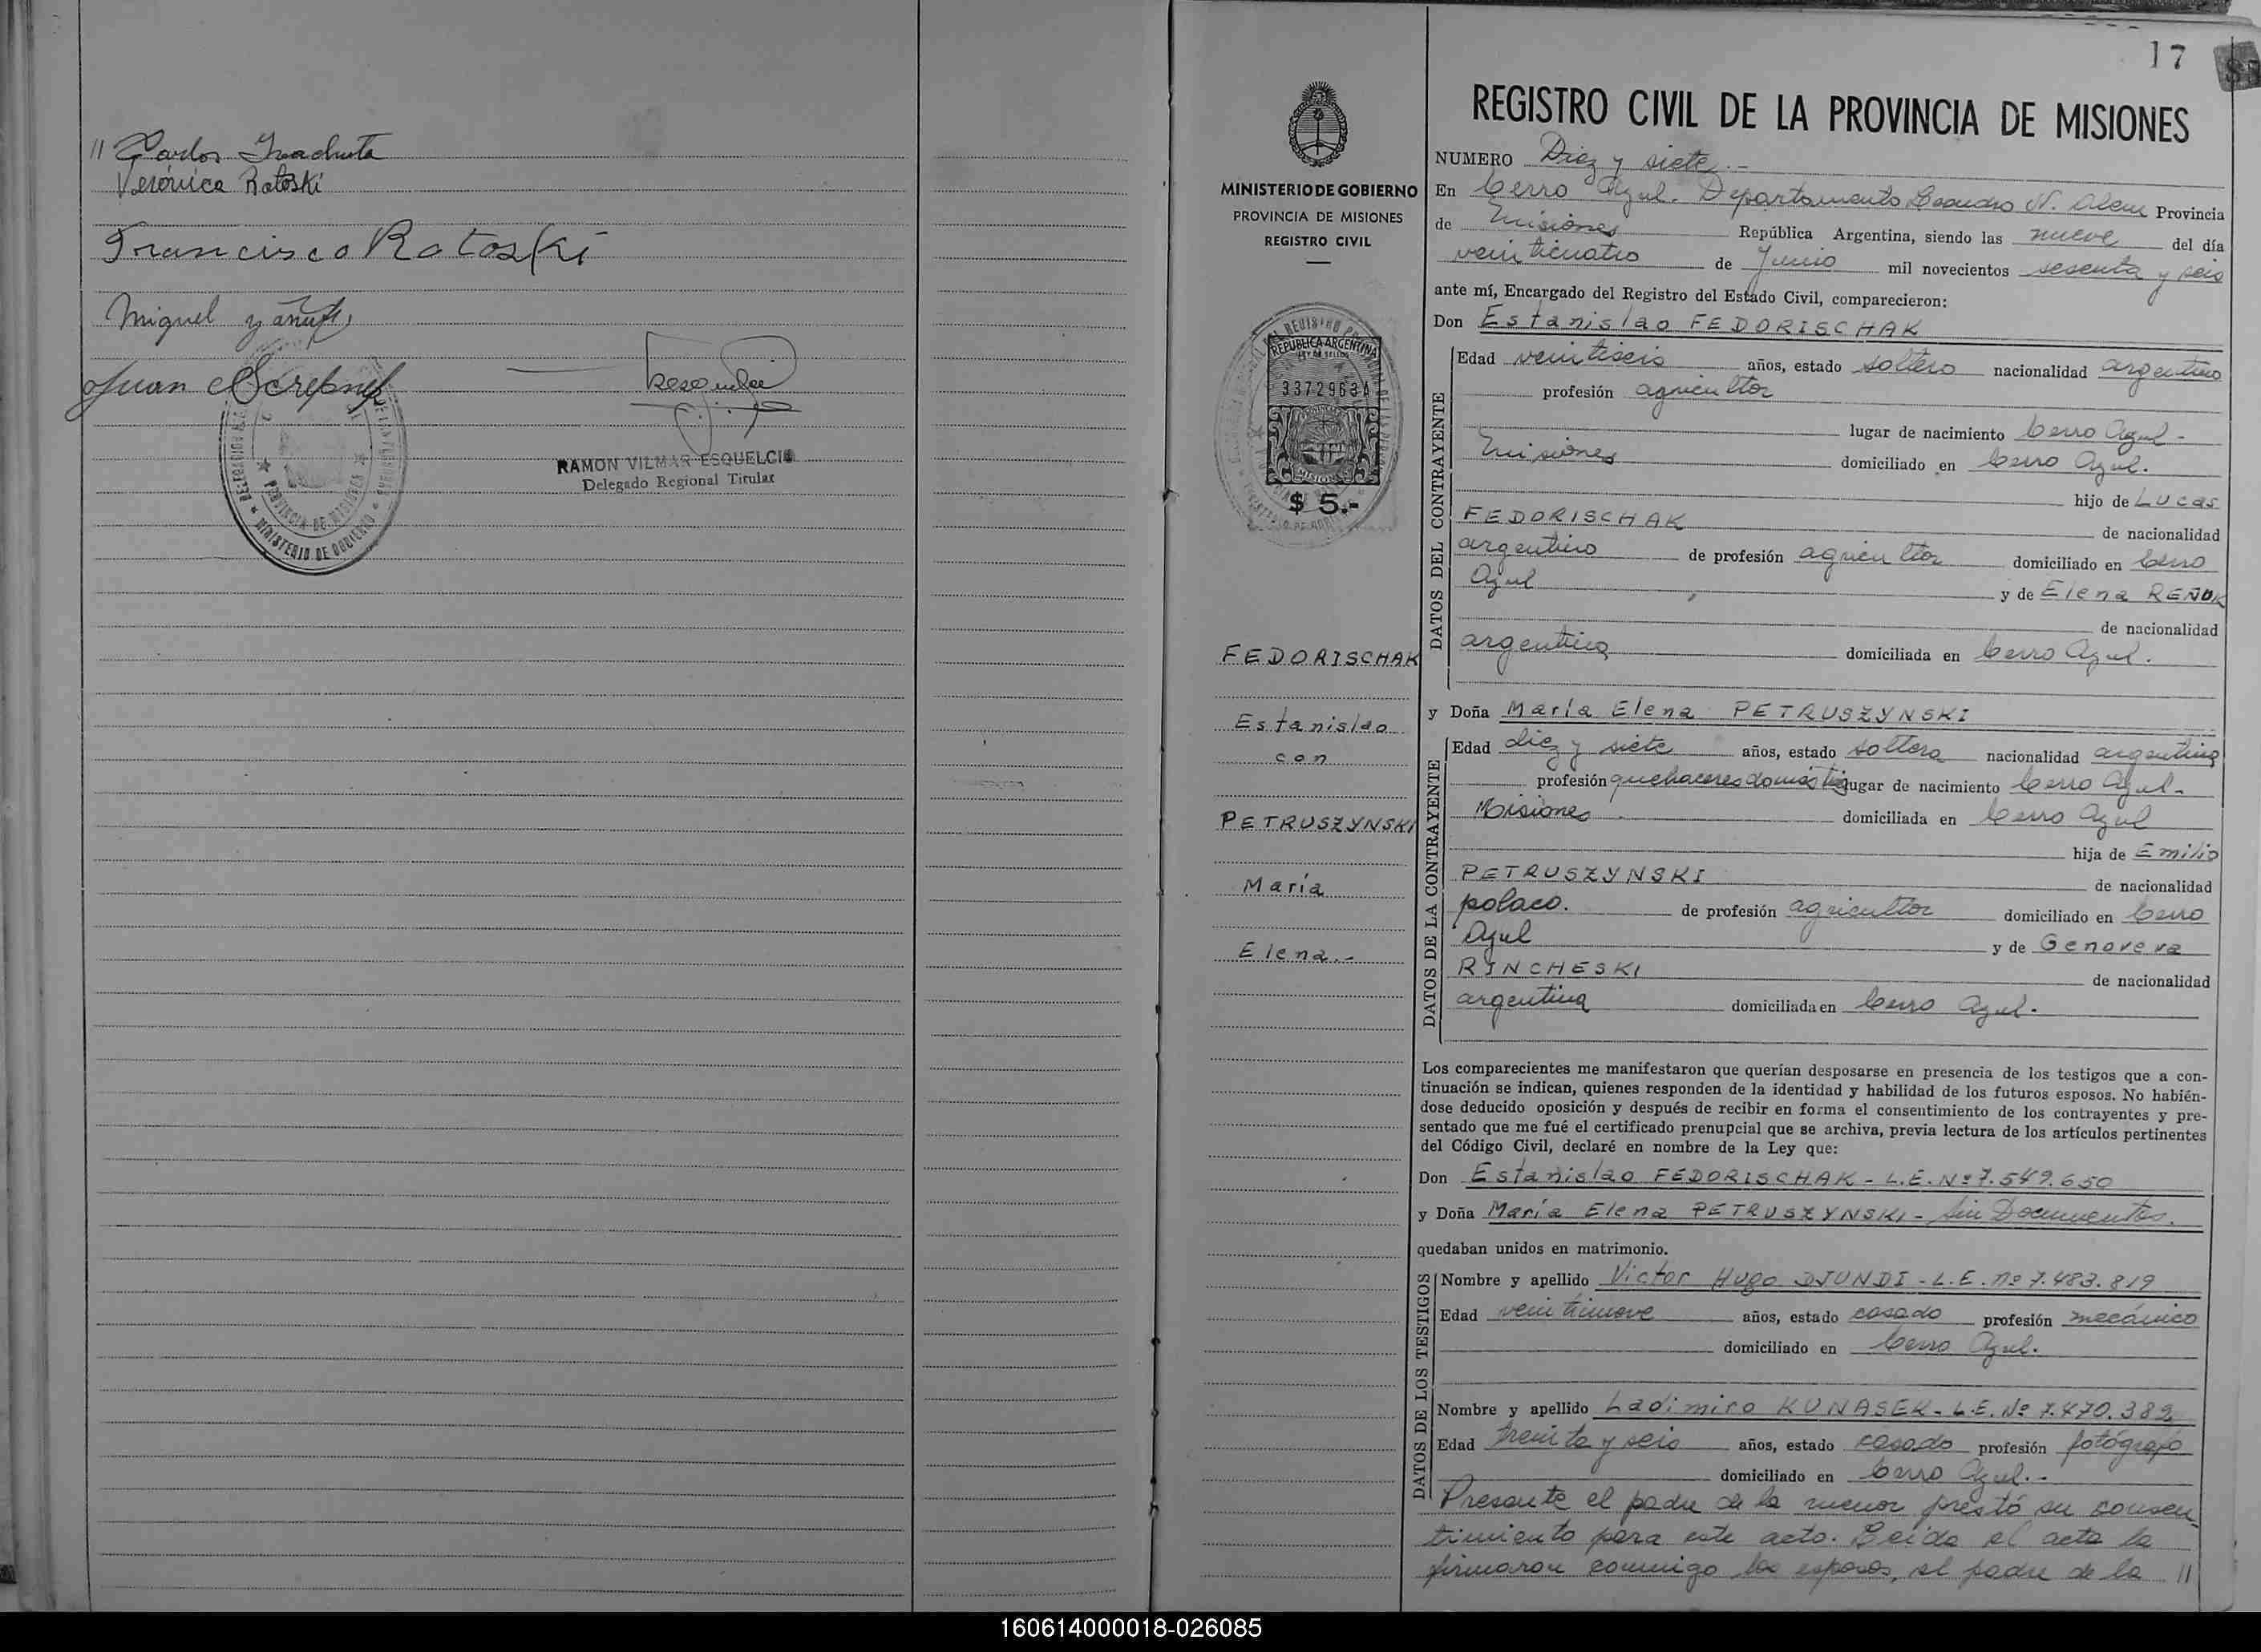 17
// Carlos
Verónica Ratoski
Francisco Ratoski
Miguel
Juan
RAMON VILMAR ESQUELCIO
Delegado Regional Titular
PROVINCIA DE MISIONES
MINISTERIO DE GOBIERNO
MINISTERIO DE GOBIERNO
PROVINCIA DE MISIONES
REGISTRO CIVIL
REPUBLICA ARGENTINA
LEY DE SELLOS
3372963A
MISIONES
$ 5.-
FEDORISCHAK
Estanislao
con
PETRUSZYNSKI
María
Elena.-
REGISTRO CIVIL DE LA PROVINCIA DE MISIONES
NUMERO Diez y siete.-
En Cerro Azul. Departamento Leandro N. Alem Provincia
de Misiones República Argentina, siendo las nueve del día
veinticuatro de Junio mil novecientos sesenta y seis
ante mí, Encargado del Registro del Estado Civil, comparecieron:
Don Estanislao FEDORISCHAK
DATOS DEL CONTRAYENTE
Edad veintiseis años, estado soltero nacionalidad argentino
profesión agricultor
lugar de nacimiento Cerro Azul-
Misiones domiciliado en Cerro Azul.
hijo de Lucas
FEDORISCHAK de nacionalidad
argentino de profesión agricultor domiciliado en Cerro
Azul y de Elena
de nacionalidad
argentina domiciliada en Cerro Azul.
y Doña María Elena PETRUSZYNSKI
DATOS DE LA CONTRAYENTE
Edad diez y siete años, estado soltera nacionalidad argentina
profesión quehaceres domésticos lugar de nacimiento Cerro Azul-
Misiones domiciliada en Cerro Azul
hija de Emilio
PETRUSZYNSKI de nacionalidad
polaco. de profesión agricultor domiciliado en Cerro
Azul y de Genoveva
RINCHESKI de nacionalidad
argentina domiciliada en Cerro Azul.
Los comparecientes me manifestaron que querían desposarse en presencia de los testigos que a con-
tinuación se indican, quienes responden de la identidad y habilidad de los futuros esposos. No habién-
dose deducido oposición y después de recibir en forma el consentimiento de los contrayentes y pre-
sentado que me fué el certificado prenupcial que se archiva, previa lectura de los artículos pertinentes
del Código Civil, declaré en nombre de la Ley que:
Don Estanislao FEDORISCHAK - L.E. Nº 7.549.650
y Doña María Elena PETRUSZYNSKI - Sin Documentos.
quedaban unidos en matrimonio.
DATOS DE LOS TESTIGOS
Nombre y apellido Victor Hugo DJUNDI - L.E. nº 7.483.819
Edad veintinueve años, estado casado profesión mecánico
domiciliado en Cerro Azul.
Nombre y apellido Ladimiro KUNASEK - L.E. Nº 7.470.382
Edad treinta y seis años, estado casado profesión fotógrafo
domiciliado en Cerro Azul.-
Presente el padre de la menor prestó su consen-
timiento para este acto. Leída el acta la
firmaron conmigo los esposos, el padre de la //
160614000018-026085